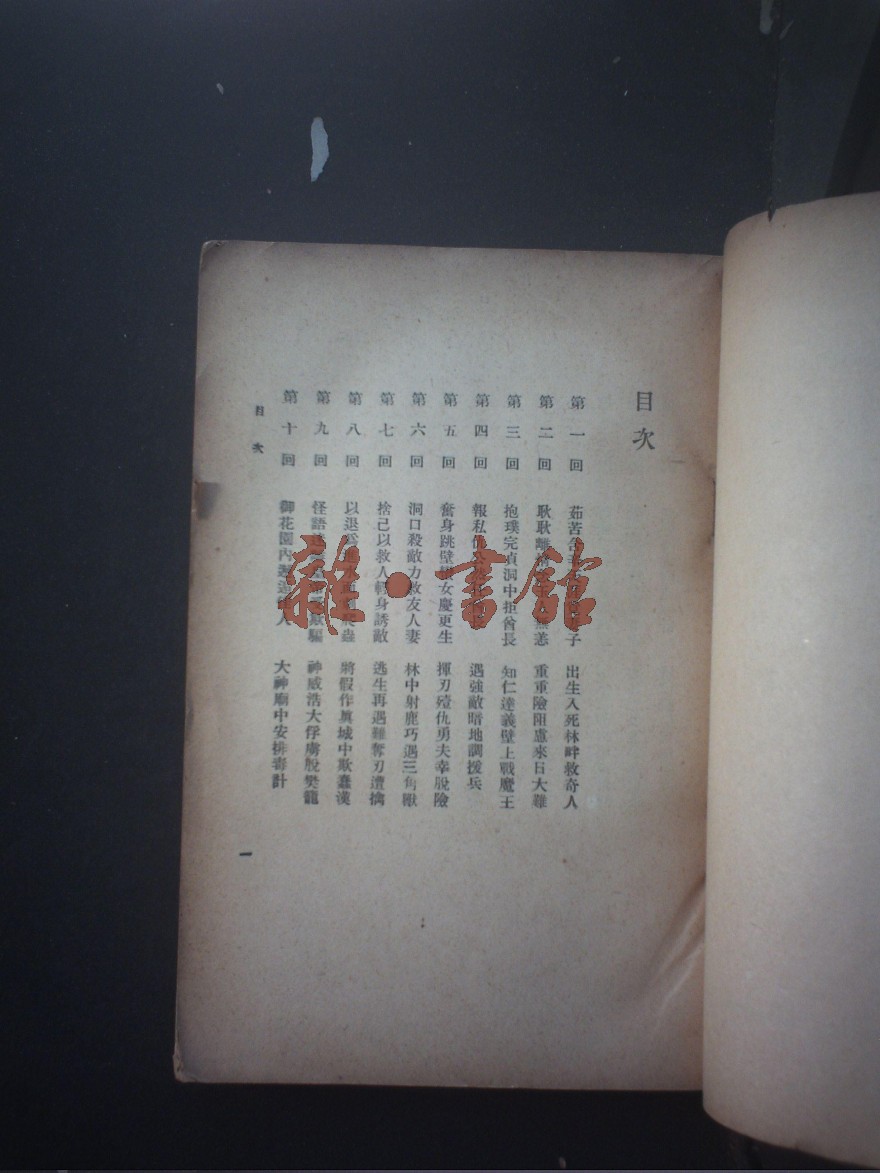 目次
第一回 茹苦含辛 子 出生入死林畔救奇人
第二回 耿耿離情 無恙 重重險阻慮來日大難
第三回 抱璞完貞洞中拒酋長 知仁達義壁上戰魔王
第四回 報私仇 遇強敵暗地調援兵
第五回 奮身跳壁 女慶更生 揮刃殪仇勇夫幸脫險
第六回 洞口殺敵力救友人妻 林中射鹿巧遇三角獸
第七回 捨己以救人轉身誘敵 逃生再遇難奪刃遭擒
第八回 以退爲進 蟲 將假作眞城中欺蠢漢
第九回 怪語 騙 神威浩大俘虜脫樊籠
第十回 御花園內邂逅 人 大神廟中安排毒計
目次
一
雜·書館